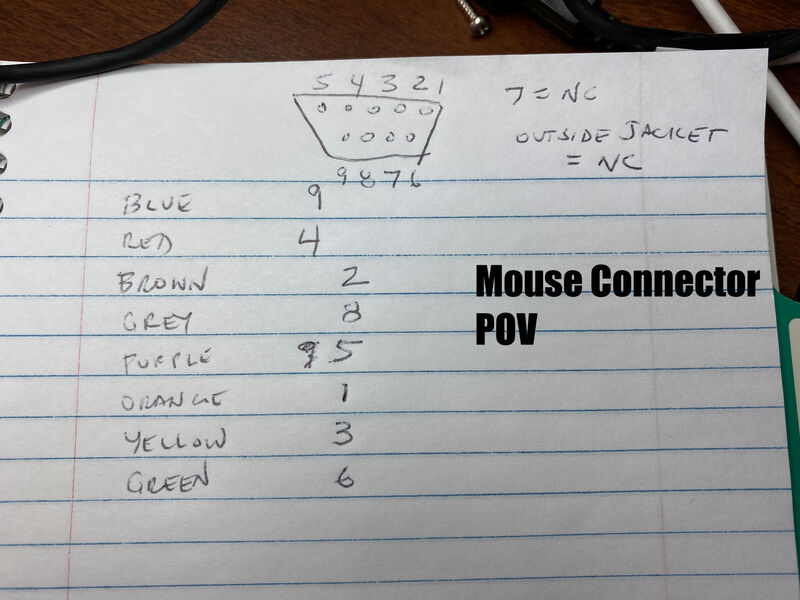 5 4 3 2 1
7 = NC
OUTSIDE JACKET
= NC
9 8 7 6
BLUE 9
RED 4
BROWN 2
GREY 8
PURPLE 5
ORANGE 1
YELLOW 3
GREEN 6
Mouse Connector
POV